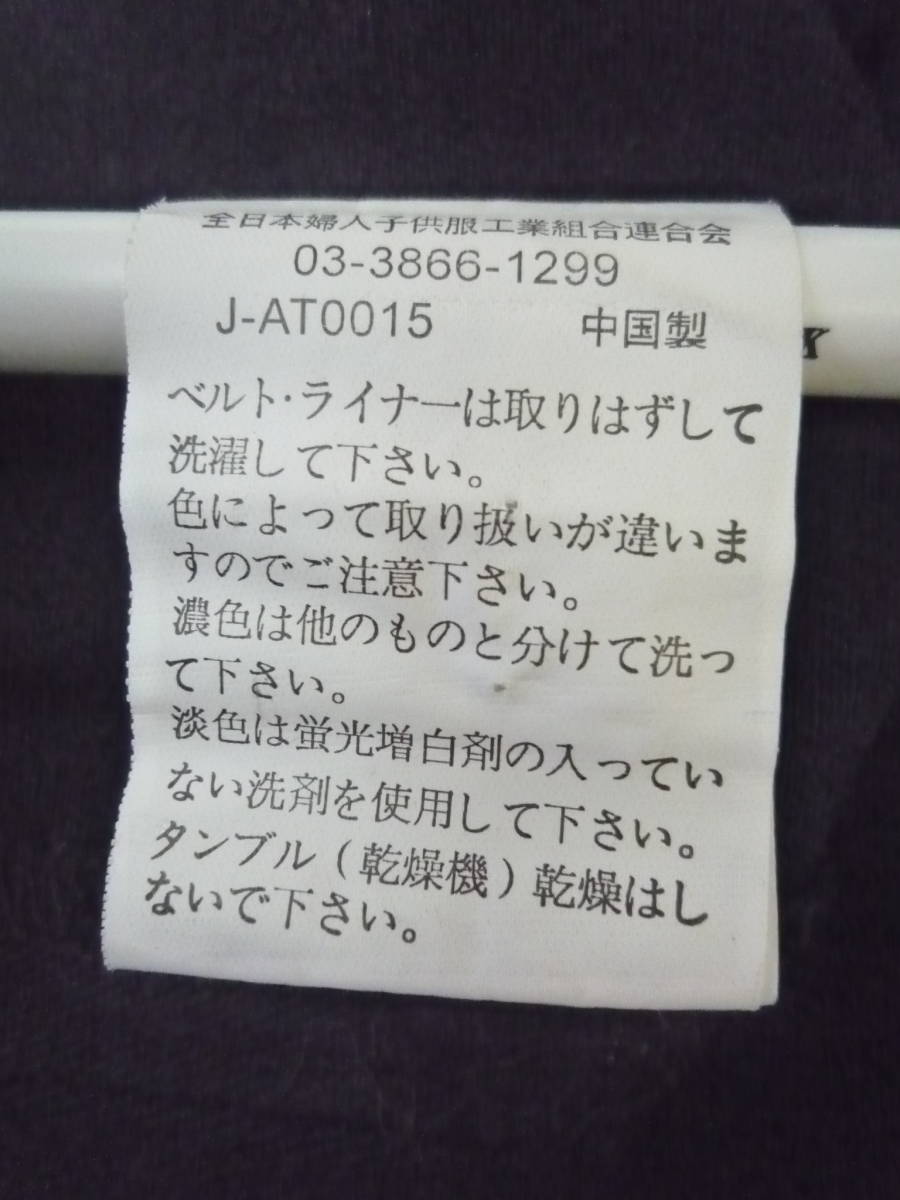 全日本婦人子供服工業組合連合会
03-3866-1299
J-AT0015 中国製
ベルト・ライナーは取りはずして
洗濯して下さい。
色によって取り扱いが違いま
すのでご注意下さい。
濃色は他のものと分けて洗っ
て下さい。
淡色は蛍光増白剤の入ってい
ない洗剤を使用して下さい。
タンブル(乾燥機)乾燥はし
ないで下さい。